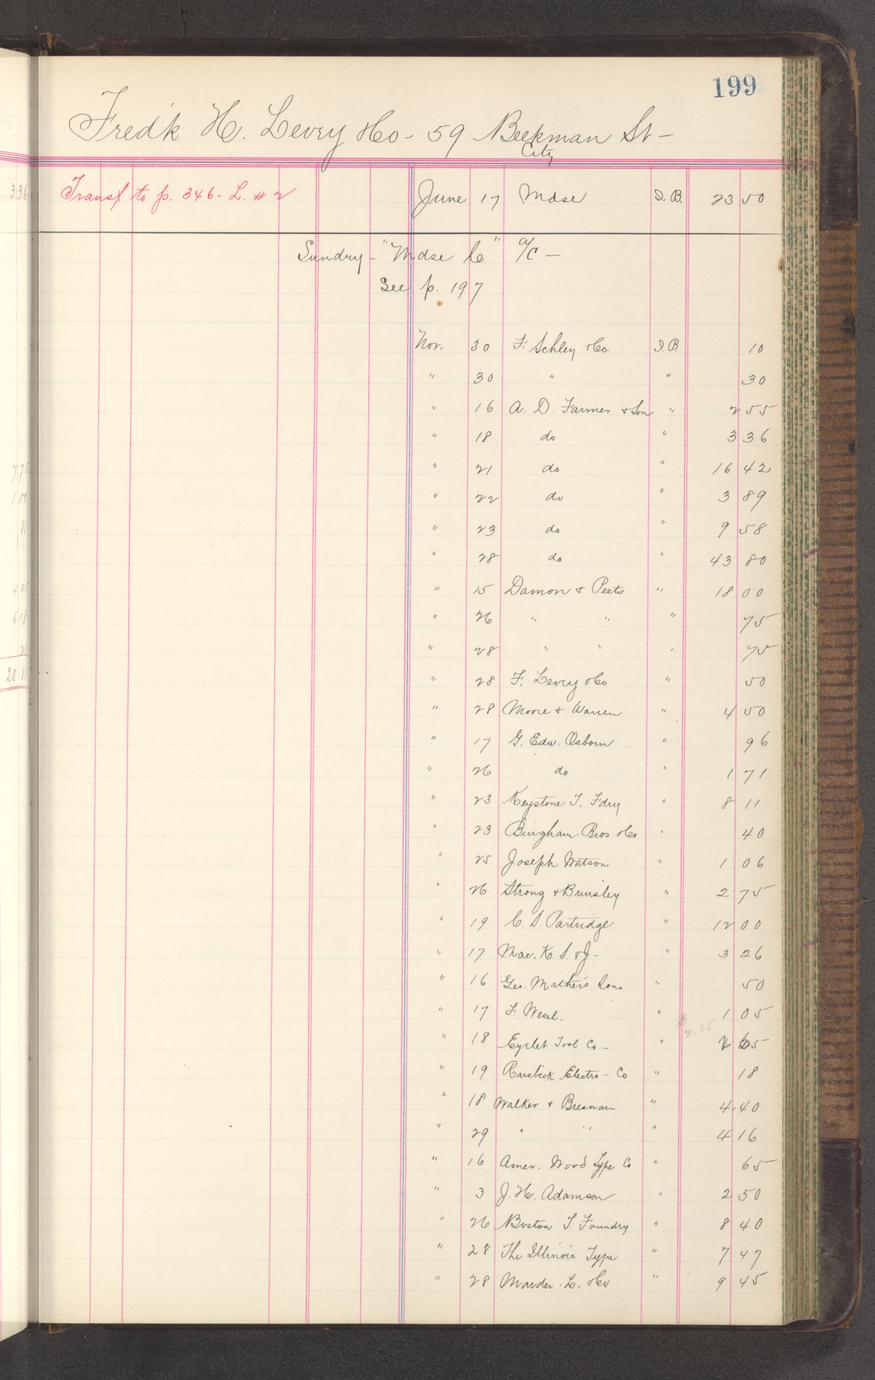 199
Fred'k H. Levey & Co - 59 Beekman St -
City
Transf to p. 346 - L. # 2 June 17 Mdse I.B. 23 50
Sundry - "Mdse Co" a/c -
See p. 197
Nov. 30 F. Schley & Co I.B. 10
" 30 " " 30
" 16 A. D. Farmer & Son " 2 55
" 18 do " 3 36
" 21 do " 16 42
" 22 do " 3 89
" 23 do " 9 58
" 28 do " 43 80
" 15 Damon & Peets " 18 00
" 26 " " " 75
" 28 " " " 75
" 28 F. Levey & Co " 50
" 28 Moore & Warren " 4 50
" 17 G. Edw. Osborn " 96
" 26 do " 1 71
" 23 Keystone T. Fdry " 8 11
" 23 Bingham Bros & Co " 40
" 25 Joseph Watson " 1 06
" 26 Strong & Brinsley " 2 75
" 19 C. S. Partridge " 12 00
" 17 Mac. K. S. & J - " 3 26
" 16 Geo. Mather's Sons " 50
" 17 F. Wesel. " 1 05
" 18 Eyelet Tool Co - " 2 65
" 19 Raisbeck Electro - Co " 18
" 18 Walker & Bresnan " 4.40
" 29 " " " 4 16
" 16 Amer. Wood Type Co " 65
" 3 J. H. Adamson " 2 50
" 26 Boston T Foundry " 8 40
" 28 The Illinois Type " 7 47
" 28 Marder. L. & Co " 9 45